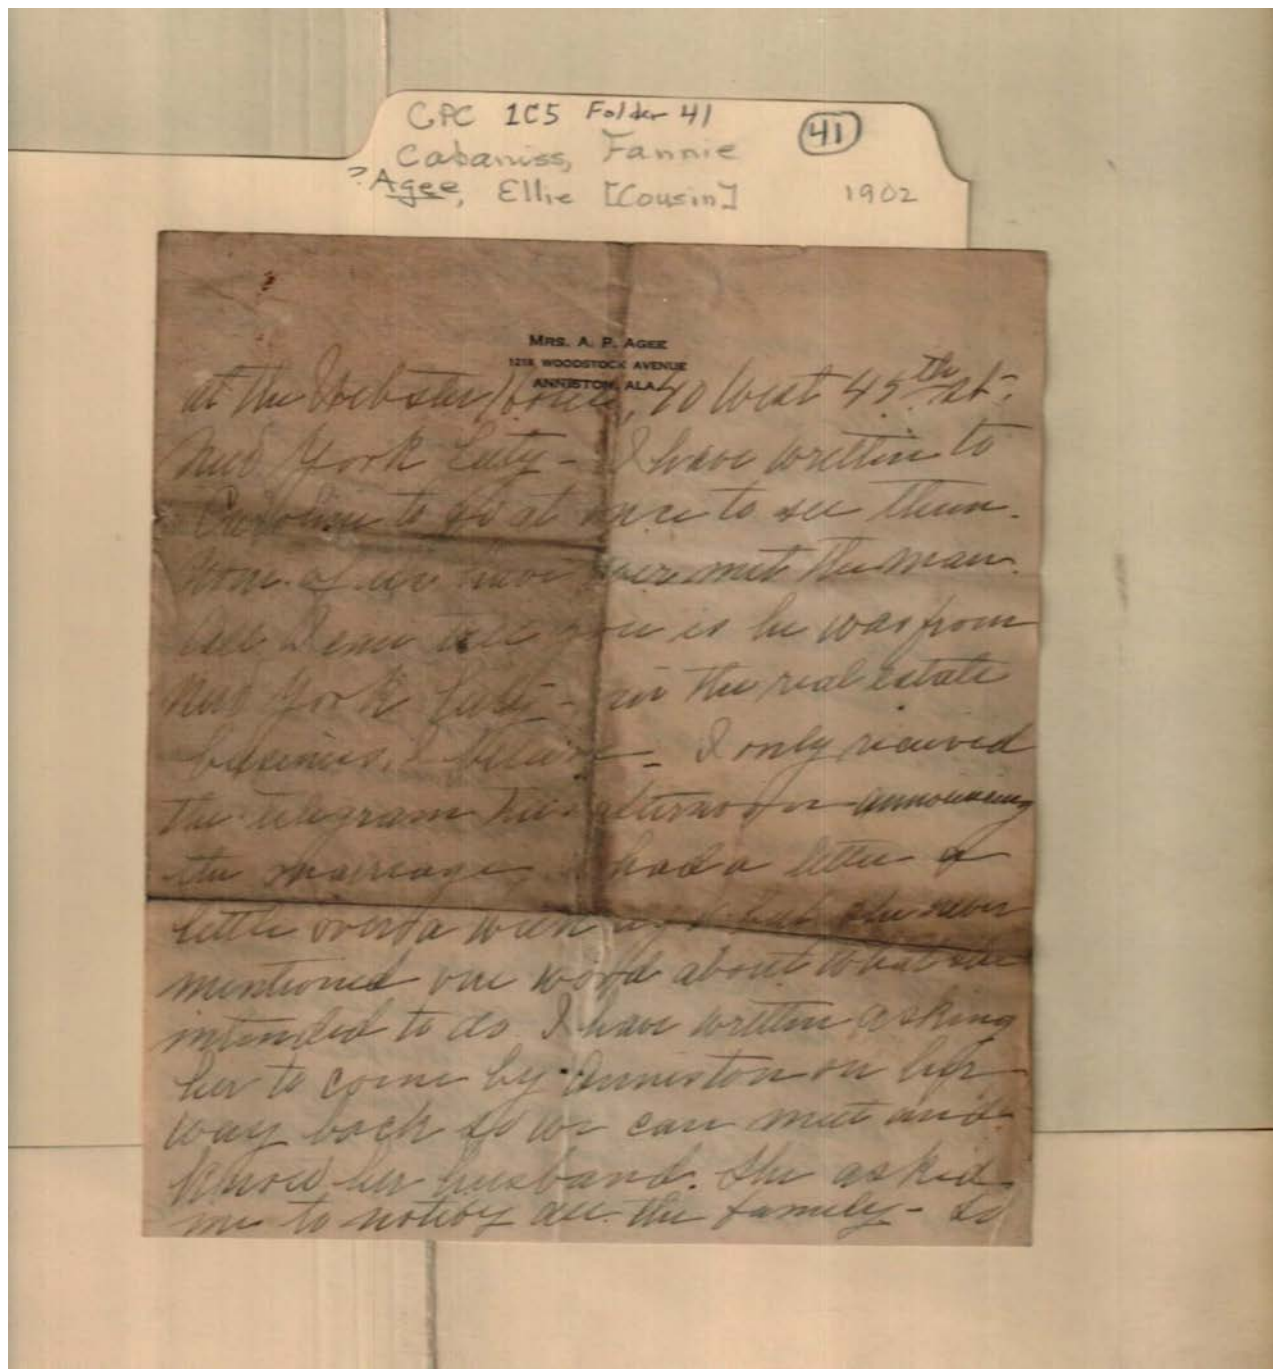 CPC 1C5 Folder 41
41
Cabaniss, Fannie
? Agee, Ellie [Cousin] 1902
MRS. A. P. AGEE
1218 WOODSTOCK AVENUE
ANNISTON, ALA.
at the Webster Hotel, 40 West 45th St-
New York City - I have written to
Caroline to go at once to see them.
None of us have ever met the man.
All I can tell you is he was from
New York City - in the real estate
business, I believe - I only received
the telegram this afternoon announcing
the marriage. I had a letter a
little over a week ago but she never
mentioned one word about what she
intended to do. I have written asking
her to come by Anniston on her
way back so we can meet and
know her husband. She asked
me to notify all the family - so